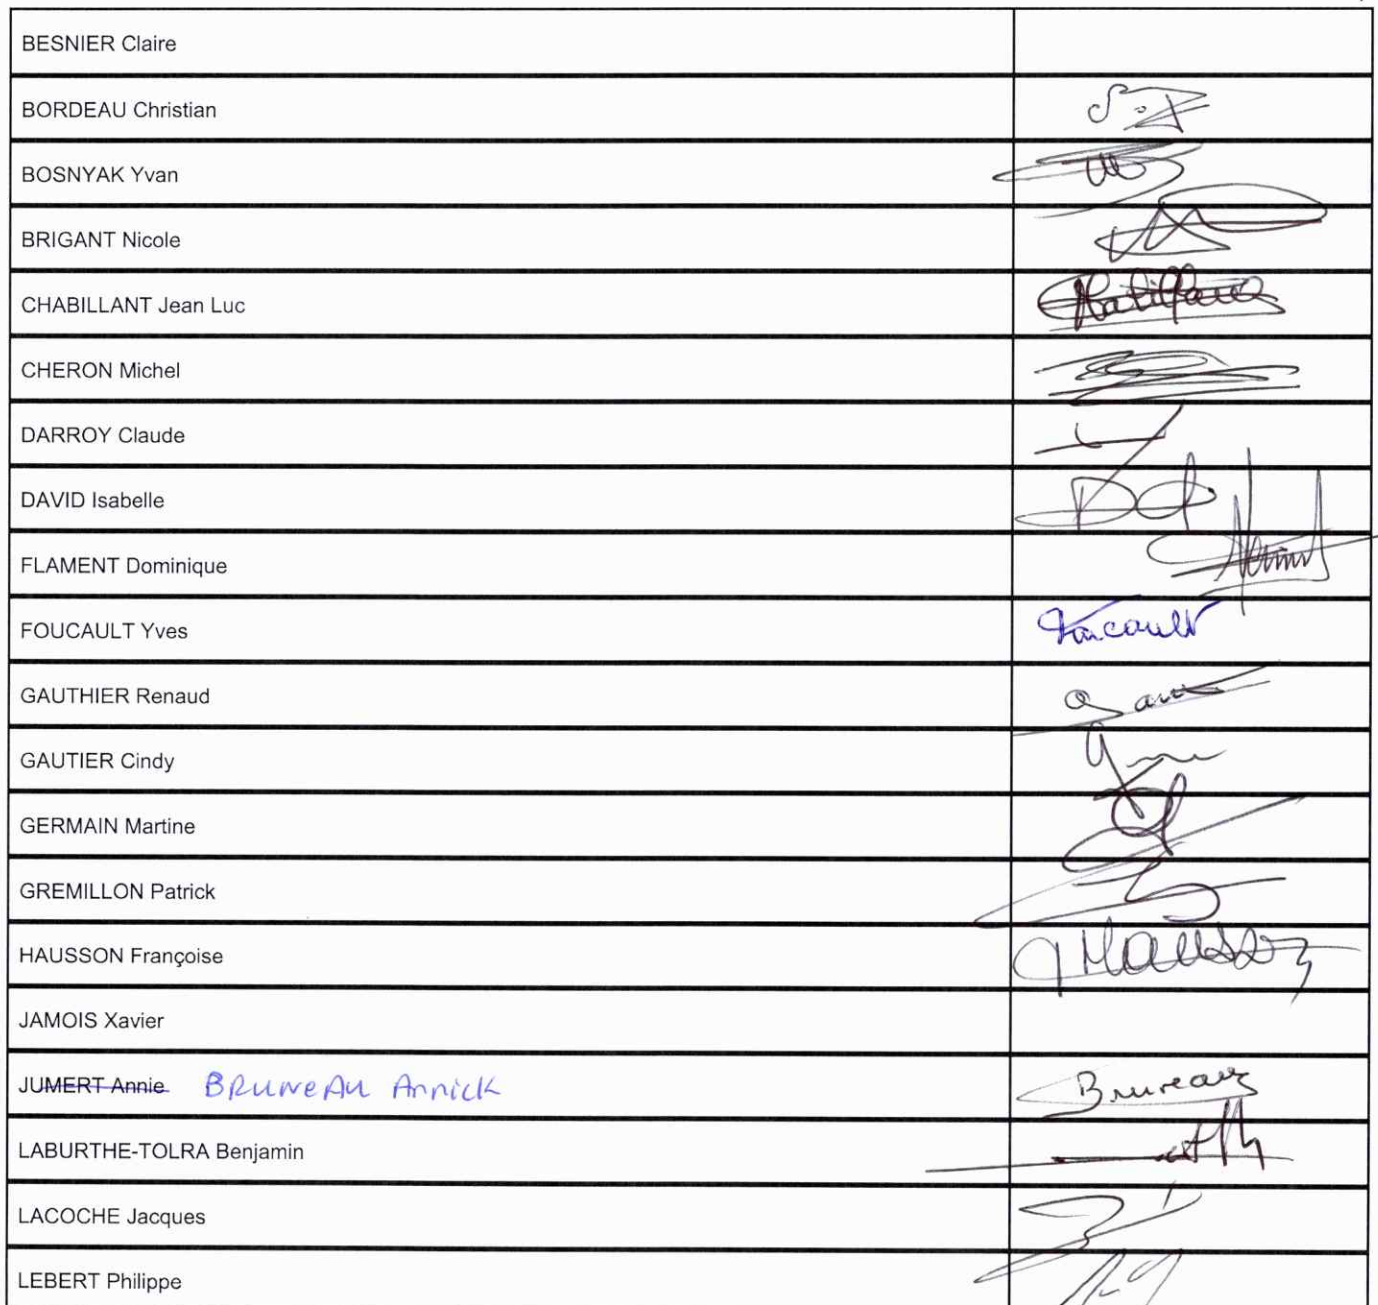 BESNIER Claire
BORDEAU Christian
BOSNYAK Yvan
BRIGANT Nicole
CHABILLANT Jean Luc
CHERON Michel
DARROY Claude
DAVID Isabelle
FLAMENT Dominique
FOUCAULT Yves Foucault
GAUTHIER Renaud
GAUTIER Cindy
GERMAIN Martine
GREMILLON Patrick
HAUSSON Françoise Hausson
JAMOIS Xavier
JUMERT Annie BRUNEAU Annick Bruneau
LABURTHE-TOLRA Benjamin
LACOCHE Jacques
LEBERT Philippe